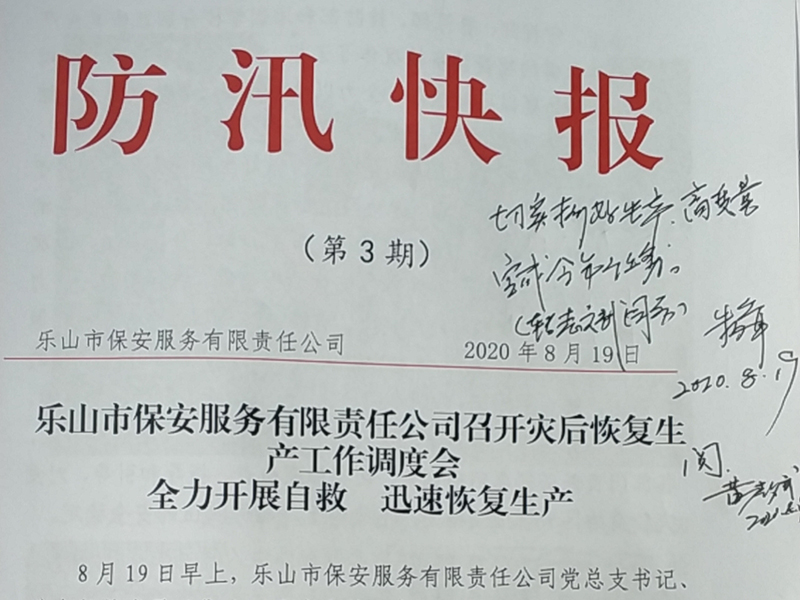 防汛快报
（第3期）
切实抓好生产，高质量
完成今年任务。
乐山市保安服务有限责任公司
2020年8月19日
2020.8.19
阅.
乐山市保安服务有限责任公司召开灾后恢复生
产工作调度会
全力开展自救 迅速恢复生产
8月19日早上，乐山市保安服务有限责任公司党总支书记、